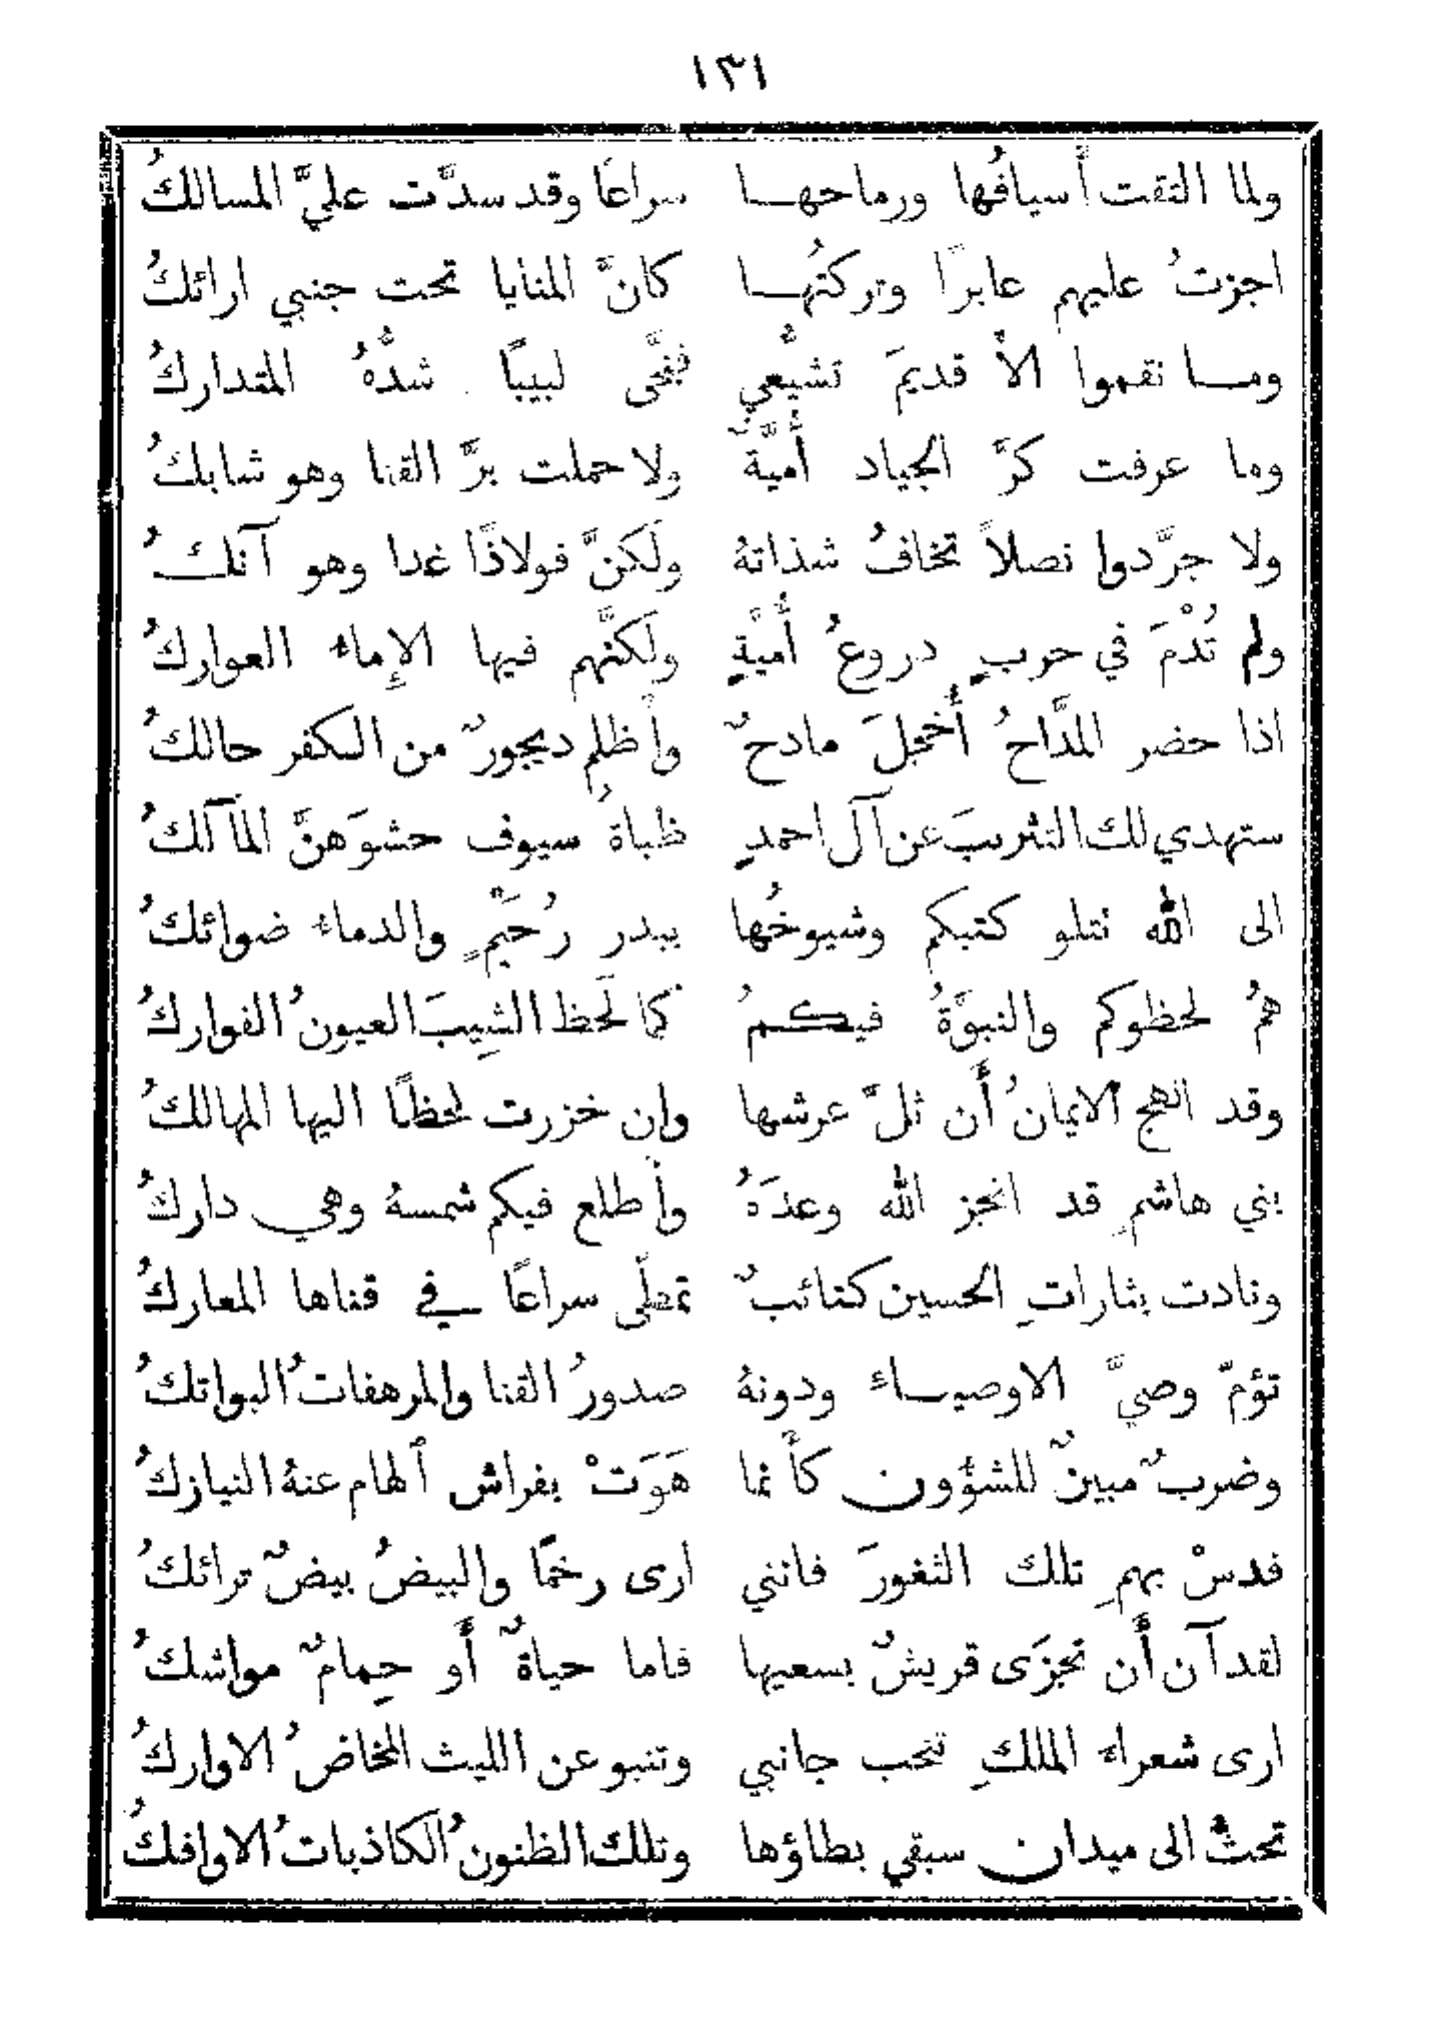 ١٣١
ولما التقت أسيافُها ورماحهـا سراعًا وقد سدَّت عليَّ المسالكُ
اجزتُ عليهم عابرًا وتركتُهـا كانَّ المنايا تحت جنبي ارائكُ
ومـا نقموا الاَّ قديمَ تشيُّعي فنجَّى لبيبًا شدُّهُ المتداركُ
وما عرفت كرَّ الجياد أُميَّةٌ ولا حملت برَّ القنا وهو شابكُ
ولا جرَّدوا نصلاً تخافُ شذاتهُ ولَكنَّ فولاذًا غدا وهو آنكُ
ولم تُدْمَ في حربٍ دروعُ أُميَّةٍ ولَكنَّهم فيها الإِماء العواركُ
اذا حضر المدَّاحُ أُخجلَ مادحٌ وأَظلم ديجورٌ من الكفر حالكُ
ستهدي لك التثريبَ عن آل احمدٍ ظباةُ سيوف حشوَهنَّ المآلكُ
الى الله نتلو كتبكم وشيوخُها ببدر رُحَيْمٍ والدماء ضوائكُ
همُ لحظوكم والنبوَّةُ فيكـمُ كما لَحَظ الشِيبَ العيونُ الفواركُ
وقد الهج الايمانُ أَن ثلَّ عرشها وان خزرت لحظًا اليها المهالكُ
بني هاشمٍ قد انجز الله وعدَهُ وأَطلع فيكم شمسهُ وهي داركُ
ونادت بثاراتِ الحسين كتائبٌ تمطَّى سراعًا في قناها المعاركُ
تؤمّ وصيَّ الاوصيـاء ودونهُ صدورُ القنا والمرهفاتُ البواتكُ
وضربٌ مبينٌ للشؤون كأَنما هَوَتْ بفراش ٱلهام عنهُ النيازكُ
فدسْ بهمِ تلك الثغورَ فانني ارى رخمًا والبيضُ بيضٌ ترائكُ
لقد آن أَن تجزَى قريشٌ بسعيها فاما حياةٌ أَو حِمامٌ مواشكُ
ارى شعراء الملكِ تنحب جانبي وتنبو عن الليث المخاضُ الاواركُ
تحثُّ الى ميدان سبقي بطاؤها وتلك الظنونُ الكاذباتُ الاوافكُ